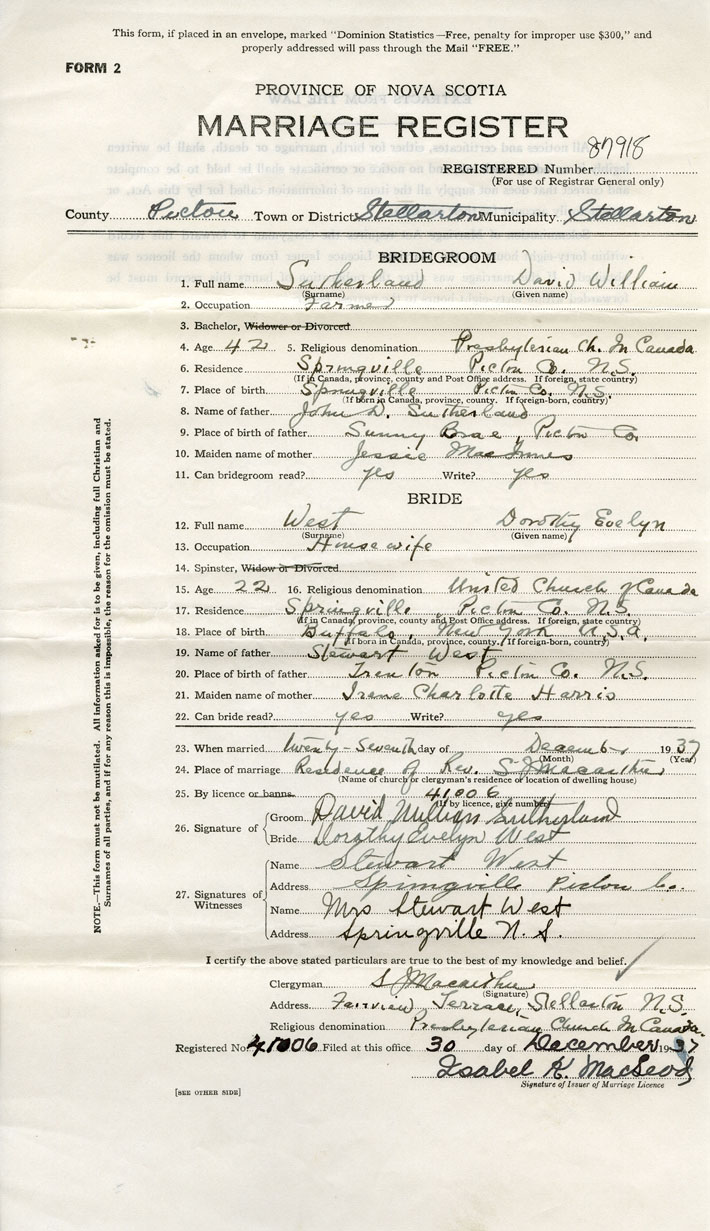 This form, if placed in an envelope, marked "Dominion Statistics—Free, penalty for improper use $300," and
properly addressed will pass through the Mail "FREE."
FORM 2
PROVINCE OF NOVA SCOTIA
MARRIAGE REGISTER
REGISTERED Number 87918
(For use of Registrar General only)
County Pictou Town or District Stellarton Municipality Stellarton
BRIDEGROOM
1. Full name Sutherland David William
(Surname) (Given name)
2. Occupation Farmer
3. Bachelor, Widower or Divorced
4. Age 42 5. Religious denomination Presbyterian Ch. In Canada
6. Residence Springville Pictou Co. N.S.
(If in Canada, province, county and Post Office address. If foreign, state country)
7. Place of birth Springville Pictou Co. N.S.
(If born in Canada, province, county. If foreign-born, country)
8. Name of father John D. Sutherland
9. Place of birth of father Sunny Brae, Pictou Co.
10. Maiden name of mother Jessie MacInnes
11. Can bridegroom read? yes Write? yes
BRIDE
12. Full name West Dorothy Evelyn
(Surname) (Given name)
13. Occupation Housewife
14. Spinster, Widow or Divorced
15. Age 22 16. Religious denomination United Church of Canada
17. Residence Springville, Pictou Co. N.S.
(If in Canada, province, county and Post Office address. If foreign, state country)
18. Place of birth Buffalo, New York U.S.A.
(If born in Canada, province, county. If foreign-born, country)
19. Name of father Stewart West
20. Place of birth of father Trenton Pictou Co. N.S.
21. Maiden name of mother Irene Charlotte Harris
22. Can bride read? yes Write? yes
23. When married twenty-seventh day of December 1937
(Month) (Year)
24. Place of marriage Residence of Rev. S J Macarthur
(Name of church or clergyman's residence or location of dwelling house)
25. By licence or banns 41006
(If by licence, give number)
26. Signature of Groom David William Sutherland
Bride Dorothy Evelyn West
27. Signatures of Witnesses
Name Stewart West
Address Springville Pictou Co.
Name Mrs Stewart West
Address Springville N.S.
I certify the above stated particulars are true to the best of my knowledge and belief.
Clergyman S J Macarthur
(Signature)
Address Fairview Terrace, Stellarton N.S
Religious denomination Presbyterian Church In Canada.
Registered No. 41006 Filed at this office 30 day of December 1937
Isabel K. MacLeod
Signature of Issuer of Marriage Licence
[SEE OTHER SIDE]
NOTE.—This form must not be mutilated. All information asked for is to be given, including full Christian and
Surnames of all parties, and if for any reason this is impossible, the reason for the omission must be stated.